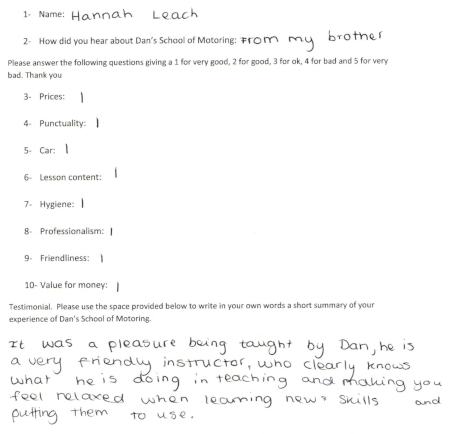 1- Name: Hannah Leach
2- How did you hear about Dan's School of Motoring: From my brother
Please answer the following questions giving a 1 for very good, 2 for good, 3 for ok, 4 for bad and 5 for very
bad. Thank you
3- Prices: 1
4- Punctuality: 1
5- Car: 1
6- Lesson content: 1
7- Hygiene: 1
8- Professionalism: 1
9- Friendliness: 1
10- Value for money: 1
Testimonial. Please use the space provided below to write in your own words a short summary of your
experience of Dan's School of Motoring.
It was a pleasure being taught by Dan, he is
a very friendly instructor, who clearly knows
what he is doing in teaching and making you
feel relaxed when learning new skills and
putting them to use.